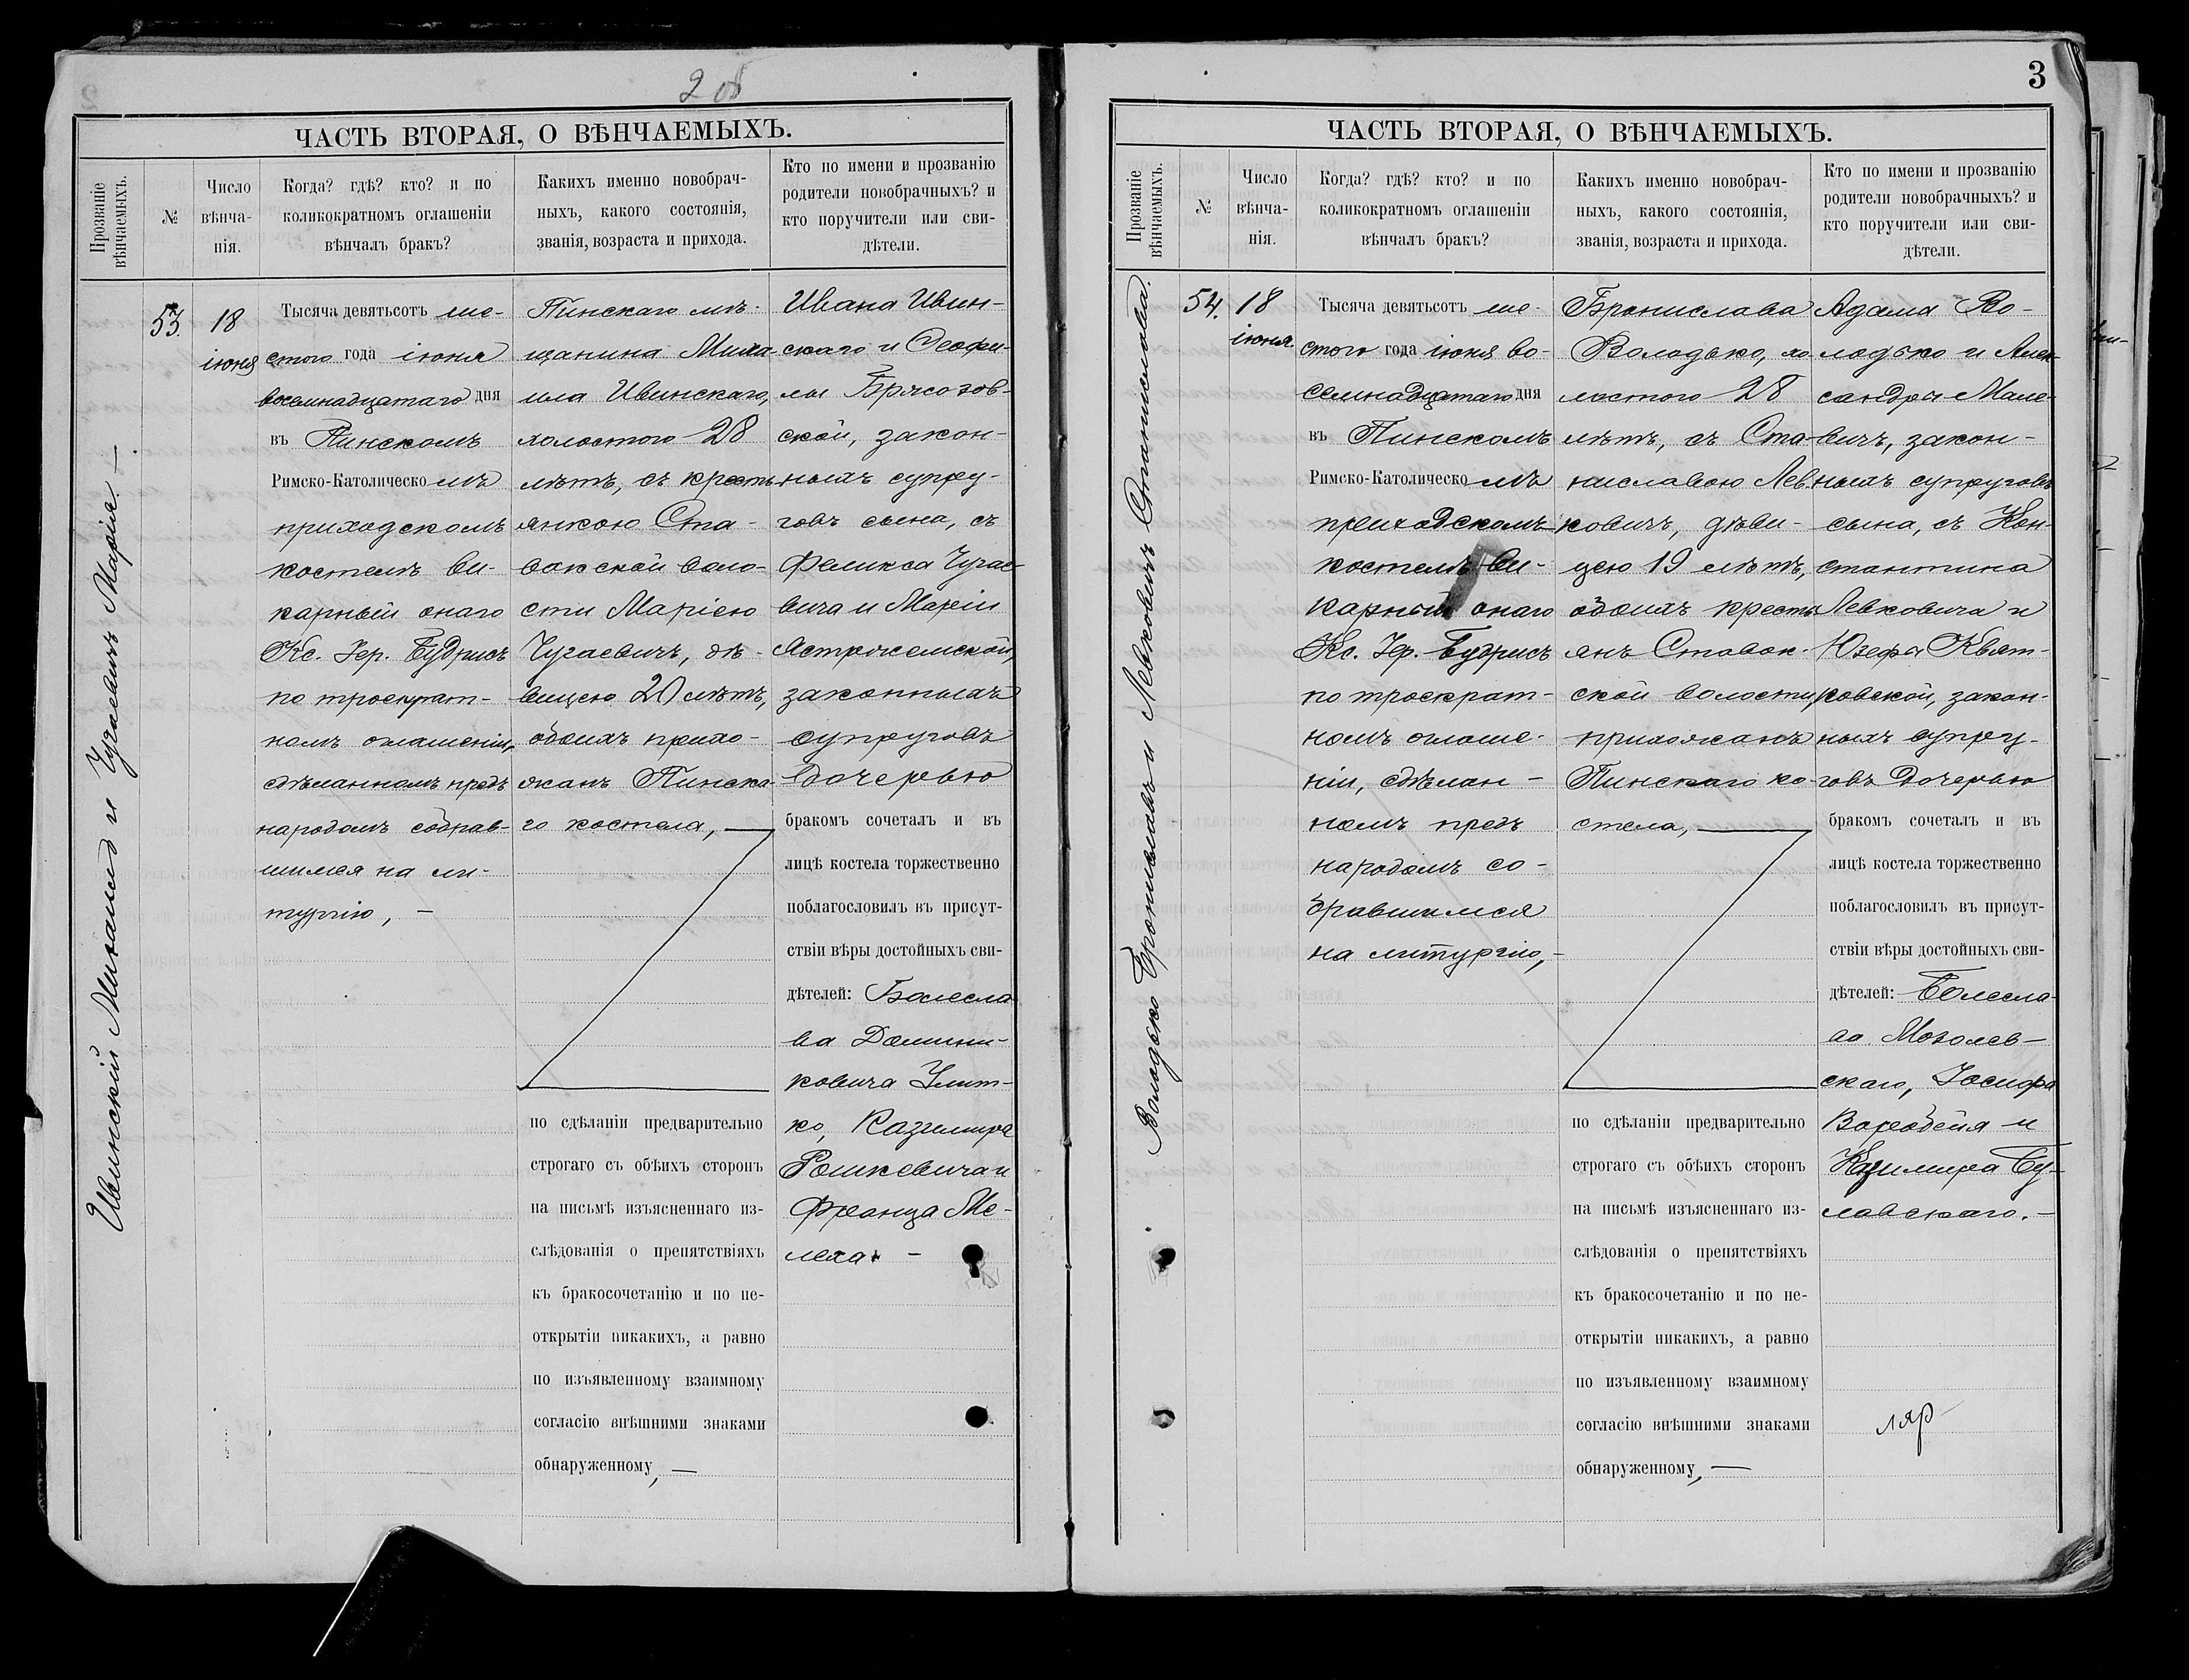 2 об
ЧАСТЬ ВТОРАЯ, О ВѢНЧАЕМЫХЪ.
Прозваніе
вѣнчаемыхъ.
№
Число
вѣнча-
нія.
Когда? гдѣ? кто? и по
коликократномъ оглашеніи
вѣнчалъ бракъ?
Какихъ именно новобрач-
ныхъ, какого состоянія,
званія, возраста и прихода.
Кто по имени и прозванію
родители новобрачныхъ? и
кто поручители или сви-
дѣтели.
Ивинскій Михаилъ и Чугаевичъ Марія. —
53.
18
іюня
Тысяча девятьсотъ ше-
стого года іюня
восемнадцатаго дня
въ Пинскомъ
Римско-Католическомъ
приходскомъ
костелѣ ви-
карный онаго
Кс. Іер. Будрисъ
по троекрат-
номъ оглашеніи,
сдѣланномъ предъ
народомъ собрав-
шимся на ли-
тургію, —
Пинскаго мѣ-
щанина Миха-
ила Ивинскаго,
холостого 28
лѣтъ, съ кресть-
янкою Ста-
вокской воло-
сти Маріею
Чугаевичъ, дѣ-
вицею 20 лѣтъ,
обоихъ прихо-
жанъ Пинска-
го костела, —
по сдѣланіи предварительно
строгаго съ обѣихъ сторонъ
на письмѣ изъясненнаго из-
слѣдованія о препятствіяхъ
къ бракосочетанію и по не-
открытіи никакихъ, а равно
по изъявленному взаимному
согласію внѣшними знаками
обнаруженному, —
Ивана Ивин-
скаго и Теофи-
лы Брясозов-
ской, закон-
ныхъ супру-
говъ сына, съ
Феликса Чугае-
вича и Маріи
Астрожемской,
законныхъ
супруговъ
дочерью
бракомъ сочеталъ и въ
лицѣ костела торжественно
поблагословилъ въ присут-
ствіи вѣры достойныхъ сви-
дѣтелей: Болесла-
ва Домини-
ковича Улит-
ко, Казимира
Рошкевича и
Франца Ме-
леха. —
3
ЧАСТЬ ВТОРАЯ, О ВѢНЧАЕМЫХЪ.
Прозваніе
вѣнчаемыхъ.
№
Число
вѣнча-
нія.
Когда? гдѣ? кто? и по
коликократномъ оглашеніи
вѣнчалъ бракъ?
Какихъ именно новобрач-
ныхъ, какого состоянія,
званія, возраста и прихода.
Кто по имени и прозванію
родители новобрачныхъ? и
кто поручители или сви-
дѣтели.
Володько Брониславъ и Левковичъ Станислава.
54.
18
іюня.
Тысяча девятьсотъ ше-
стого года іюня во-
семнадцатаго дня
въ Пинскомъ
Римско-Католическомъ
приходскомъ
костелѣ ви-
карный онаго
Кс. Іер. Будрисъ
по троекрат-
номъ оглаше-
ніи, сдѣлан-
номъ предъ
народомъ со-
бравшимся
на литургію, —
Бронислава
Володько, хо-
лостого 28
лѣтъ, съ Ста-
ниславою Лев-
ковичъ, дѣви-
цею 19 лѣтъ,
обоихъ кресть-
янъ Ставок-
ской волости,
прихожанъ
Пинскаго ко-
стела, —
по сдѣланіи предварительно
строгаго съ обѣихъ сторонъ
на письмѣ изъясненнаго из-
слѣдованія о препятствіяхъ
къ бракосочетанію и по не-
открытіи никакихъ, а равно
по изъявленному взаимному
согласію внѣшними знаками
обнаруженному, —
Адама Во-
лодько и Алек-
сандры Мале-
вичъ, закон-
ныхъ супруговъ
сына, съ Кон-
стантина
Левковича и
Юзефы Квят-
ковской, закон-
ныхъ супру-
говъ дочерью
бракомъ сочеталъ и въ
лицѣ костела торжественно
поблагословилъ въ присут-
ствіи вѣры достойныхъ сви-
дѣтелей: Болесла-
ва Моголев-
скаго, Іосифа
Воробья и
Казимира Бу-
лавскаго. —